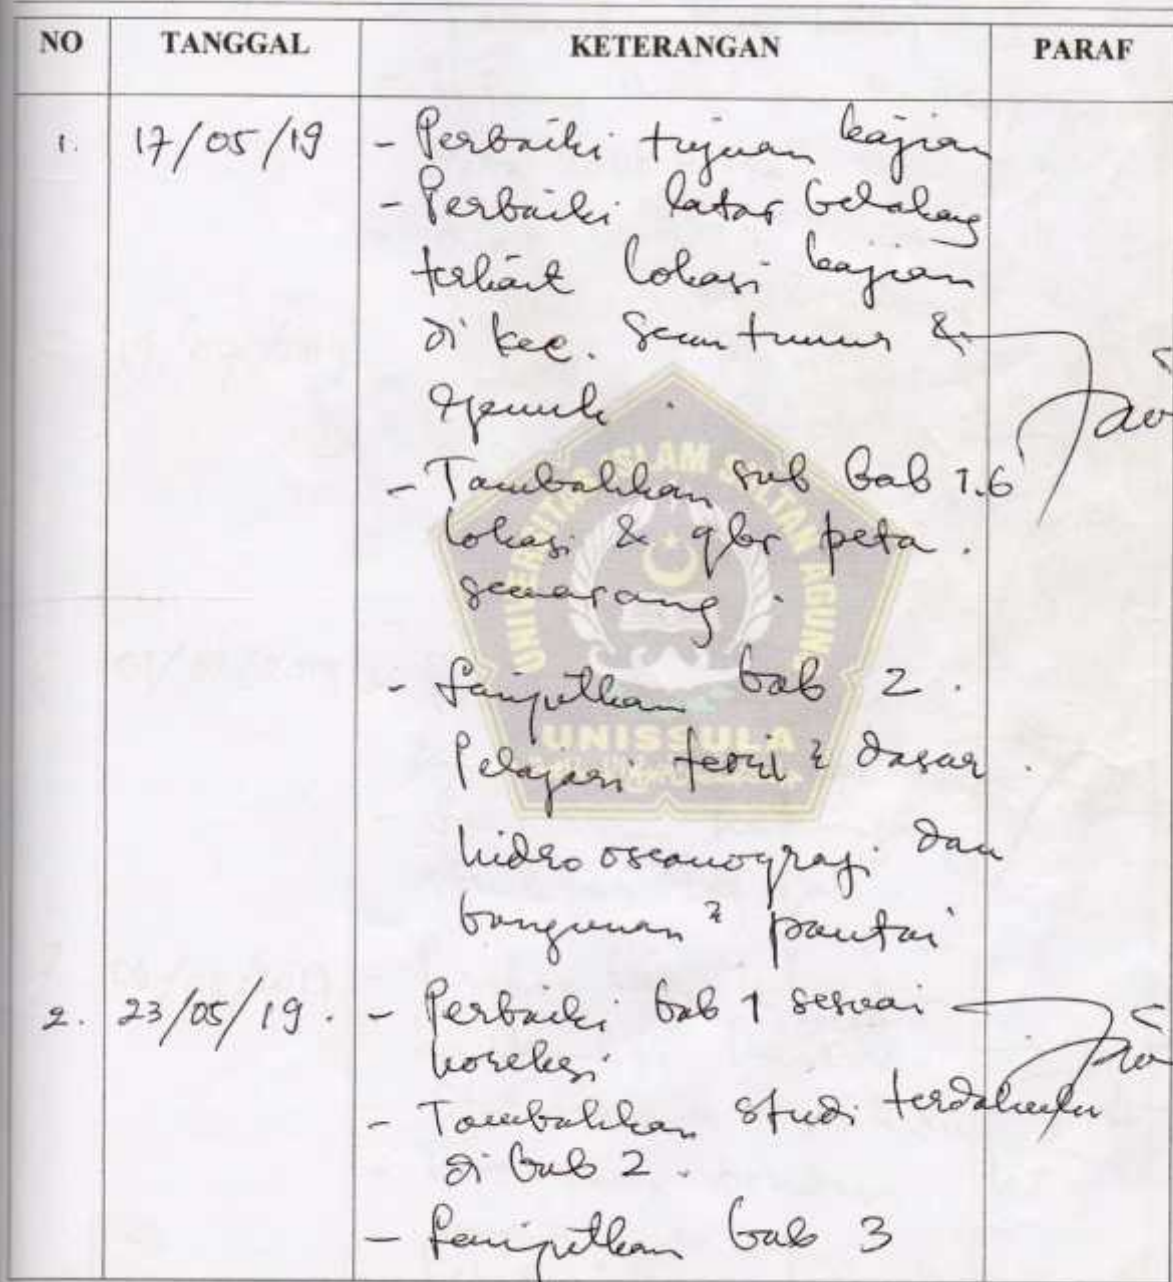 NO TANGGAL KETERANGAN PARAF
1. 17/05/19 - Perbaiki tujuan kajian
- Perbaiki latar belakang
terkait lokasi kajian
di kec. Sem timur &
genuk.
- Tambahkan sub bab 1.6
lokasi & gbr peta.
semarang.
- Lanjutkan bab 2.
Pelajari teori2 dasar.
hidro oseanografi dan
bangunan2 pantai
2. 23/05/19. - Perbaiki bab 1 sesuai
koreksi
- Tambahkan studi terdahulu
di bab 2.
- Lanjutkan bab 3
UNIVERSITAS ISLAM SULTAN AGUNG
UNISSULA